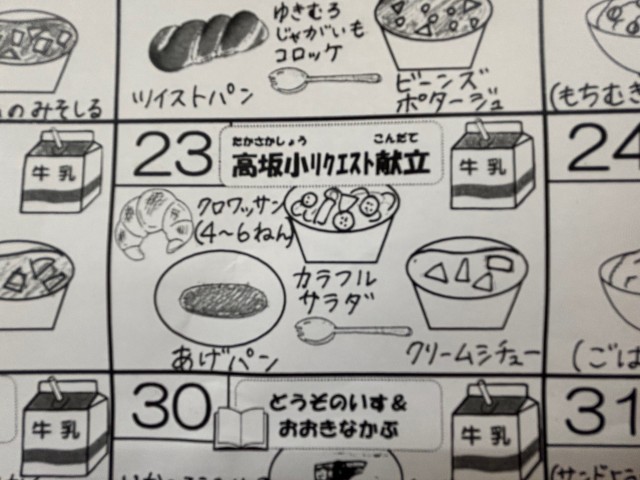 のみそしる
ツイストパン
ゆきむろ
じゃがいも
コロッケ
ビーンズ
ポタージュ
(もちむぎ
牛乳
23
たかさかしょう こんだて
高坂小リクエスト献立
牛乳
24
クロワッサン
(4~6ねん)
カラフル
サラダ
あげパン
クリームシチュー
(ごは
牛乳
30
どうぞのいす&
おおきなかぶ
牛乳
31